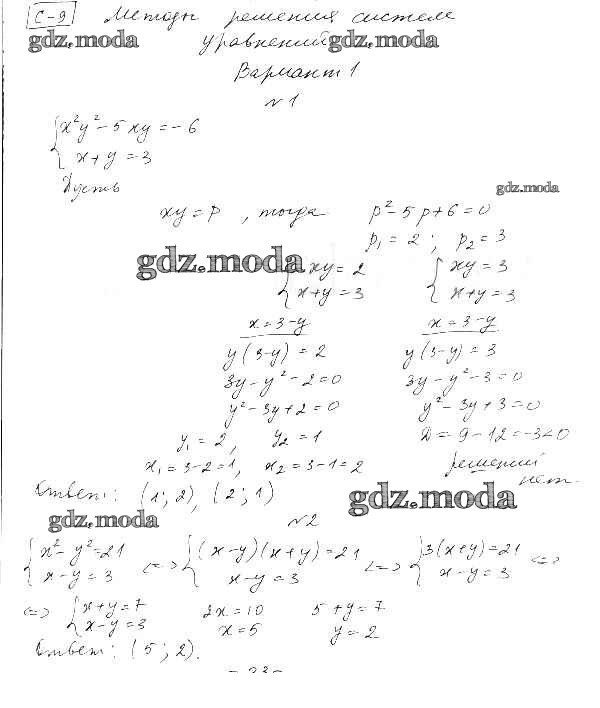 С-9 Методы решения систем
gdz.moda уравнений gdz.moda
Вариант 1
№1
{x²y² - 5xy = -6
x + y = 3
Пусть
gdz.moda
xy = p, тогда p² - 5p + 6 = 0
p₁ = 2; p₂ = 3
gdz.moda
{xy = 2 {xy = 3
x + y = 3 x + y = 3
x = 3 - y x = 3 - y
y(3 - y) = 2 y(3 - y) = 3
3y - y² - 2 = 0 3y - y² - 3 = 0
y² - 3y + 2 = 0 y² - 3y + 3 = 0
y₁ = 2, y₂ = 1 D = 9 - 12 = -3 < 0
x₁ = 3 - 2 = 1, x₂ = 3 - 1 = 2 решений
нет.
Ответ: (1; 2), (2; 1) gdz.moda
gdz.moda №2
{x² - y² = 21 <=> {(x - y)(x + y) = 21 <=> {3(x + y) = 21 <=>
x - y = 3 x - y = 3 x - y = 3
<=> {x + y = 7 2x = 10 5 + y = 7
x - y = 3 x = 5 y = 2
Ответ: (5; 2).